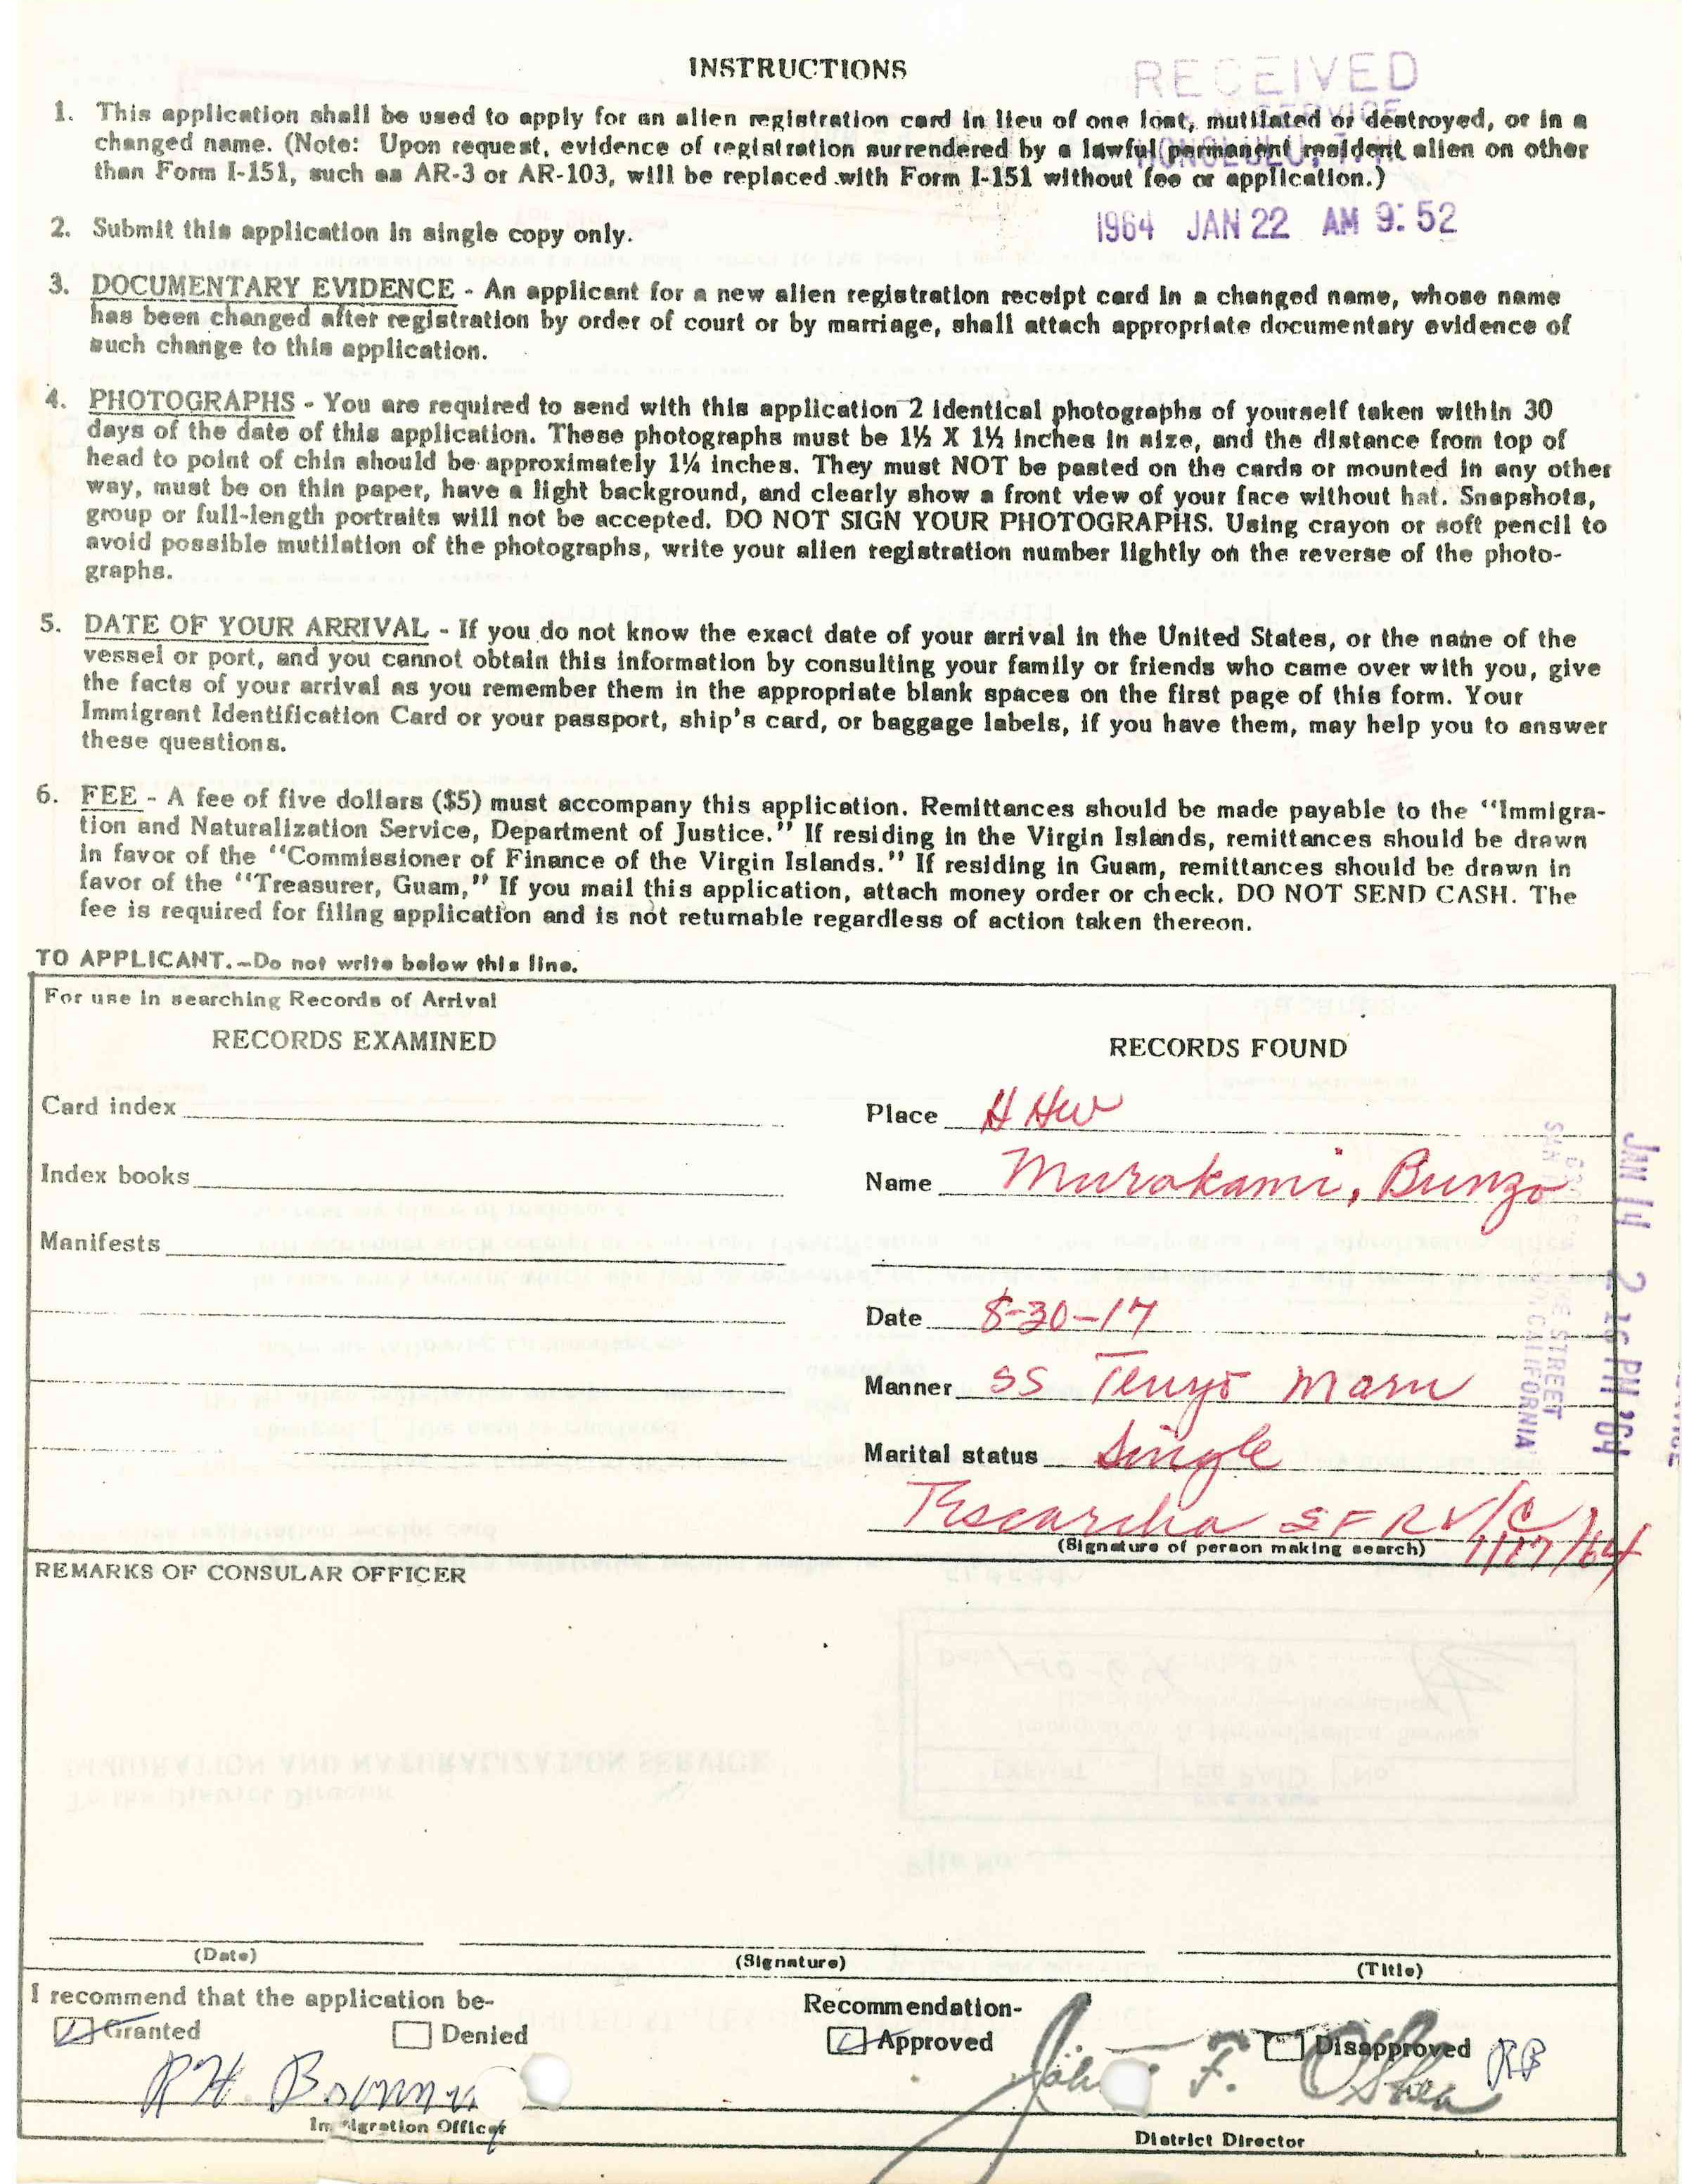 INSTRUCTIONS
RECEIVED
SERVICE
HONOLULU, T. H.
1. This application shall be used to apply for an alien registration card in lieu of one lost, mutilated or destroyed, or in a
changed name. (Note: Upon request, evidence of registration surrendered by a lawful permanent resident alien on other
than Form I-151, such as AR-3 or AR-103, will be replaced with Form I-151 without fee or application.)
1964 JAN 22 AM 9:52
2. Submit this application in single copy only.
3. DOCUMENTARY EVIDENCE - An applicant for a new alien registration receipt card in a changed name, whose name
has been changed after registration by order of court or by marriage, shall attach appropriate documentary evidence of
such change to this application.
4. PHOTOGRAPHS - You are required to send with this application 2 identical photographs of yourself taken within 30
days of the date of this application. These photographs must be 1½ X 1½ inches in size, and the distance from top of
head to point of chin should be approximately 1¼ inches. They must NOT be pasted on the cards or mounted in any other
way, must be on thin paper, have a light background, and clearly show a front view of your face without hat. Snapshots,
group or full-length portraits will not be accepted. DO NOT SIGN YOUR PHOTOGRAPHS. Using crayon or soft pencil to
avoid possible mutilation of the photographs, write your alien registration number lightly on the reverse of the photo-
graphs.
5. DATE OF YOUR ARRIVAL - If you do not know the exact date of your arrival in the United States, or the name of the
vessel or port, and you cannot obtain this information by consulting your family or friends who came over with you, give
the facts of your arrival as you remember them in the appropriate blank spaces on the first page of this form. Your
Immigrant Identification Card or your passport, ship's card, or baggage labels, if you have them, may help you to answer
these questions.
6. FEE - A fee of five dollars ($5) must accompany this application. Remittances should be made payable to the "Immigra-
tion and Naturalization Service, Department of Justice." If residing in the Virgin Islands, remittances should be drawn
in favor of the "Commissioner of Finance of the Virgin Islands." If residing in Guam, remittances should be drawn in
favor of the "Treasurer, Guam," If you mail this application, attach money order or check. DO NOT SEND CASH. The
fee is required for filing application and is not returnable regardless of action taken thereon.
TO APPLICANT.-Do not write below this line.
For use in searching Records of Arrival
RECORDS EXAMINED
RECORDS FOUND
Card index
Place H Hw
Index books
Name Murakami, Bunzo
Manifests
Date 8-30-17
Manner SS Tenyo Maru
Marital status Single
SF RV/C
1/17/64
(Signature of person making search)
JAN 14 2 16 PM '64
STREET
CALIFORNIA
REMARKS OF CONSULAR OFFICER
(Date) (Signature) (Title)
I recommend that the application be-
Granted Denied
Recommendation-
Approved Disapproved
RB
John F. O'Shea
Immigration Officer
District Director